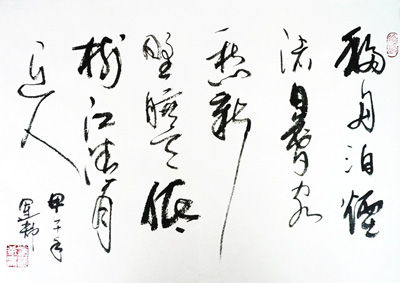 移舟泊煙
渚日暮客
愁新
野曠天低
樹江清月
近人
甲午年